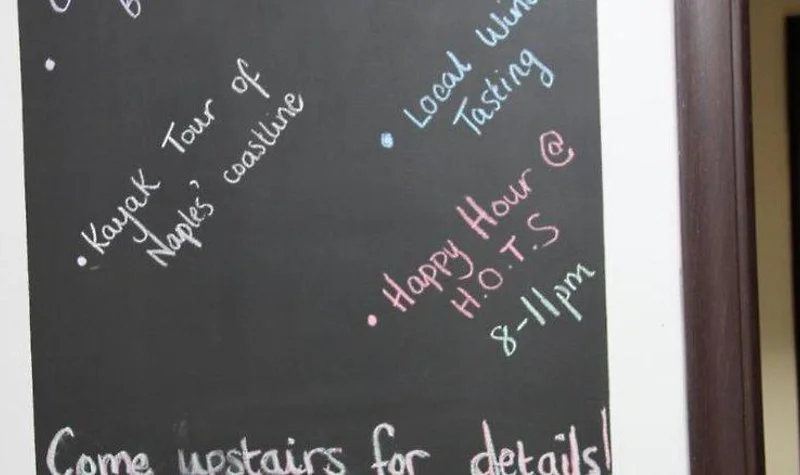 Kayak Tour of
Naples' coastline
Local Wine
Tasting
Happy Hour @
H.O.T.S
8-11pm
Come upstairs for details!